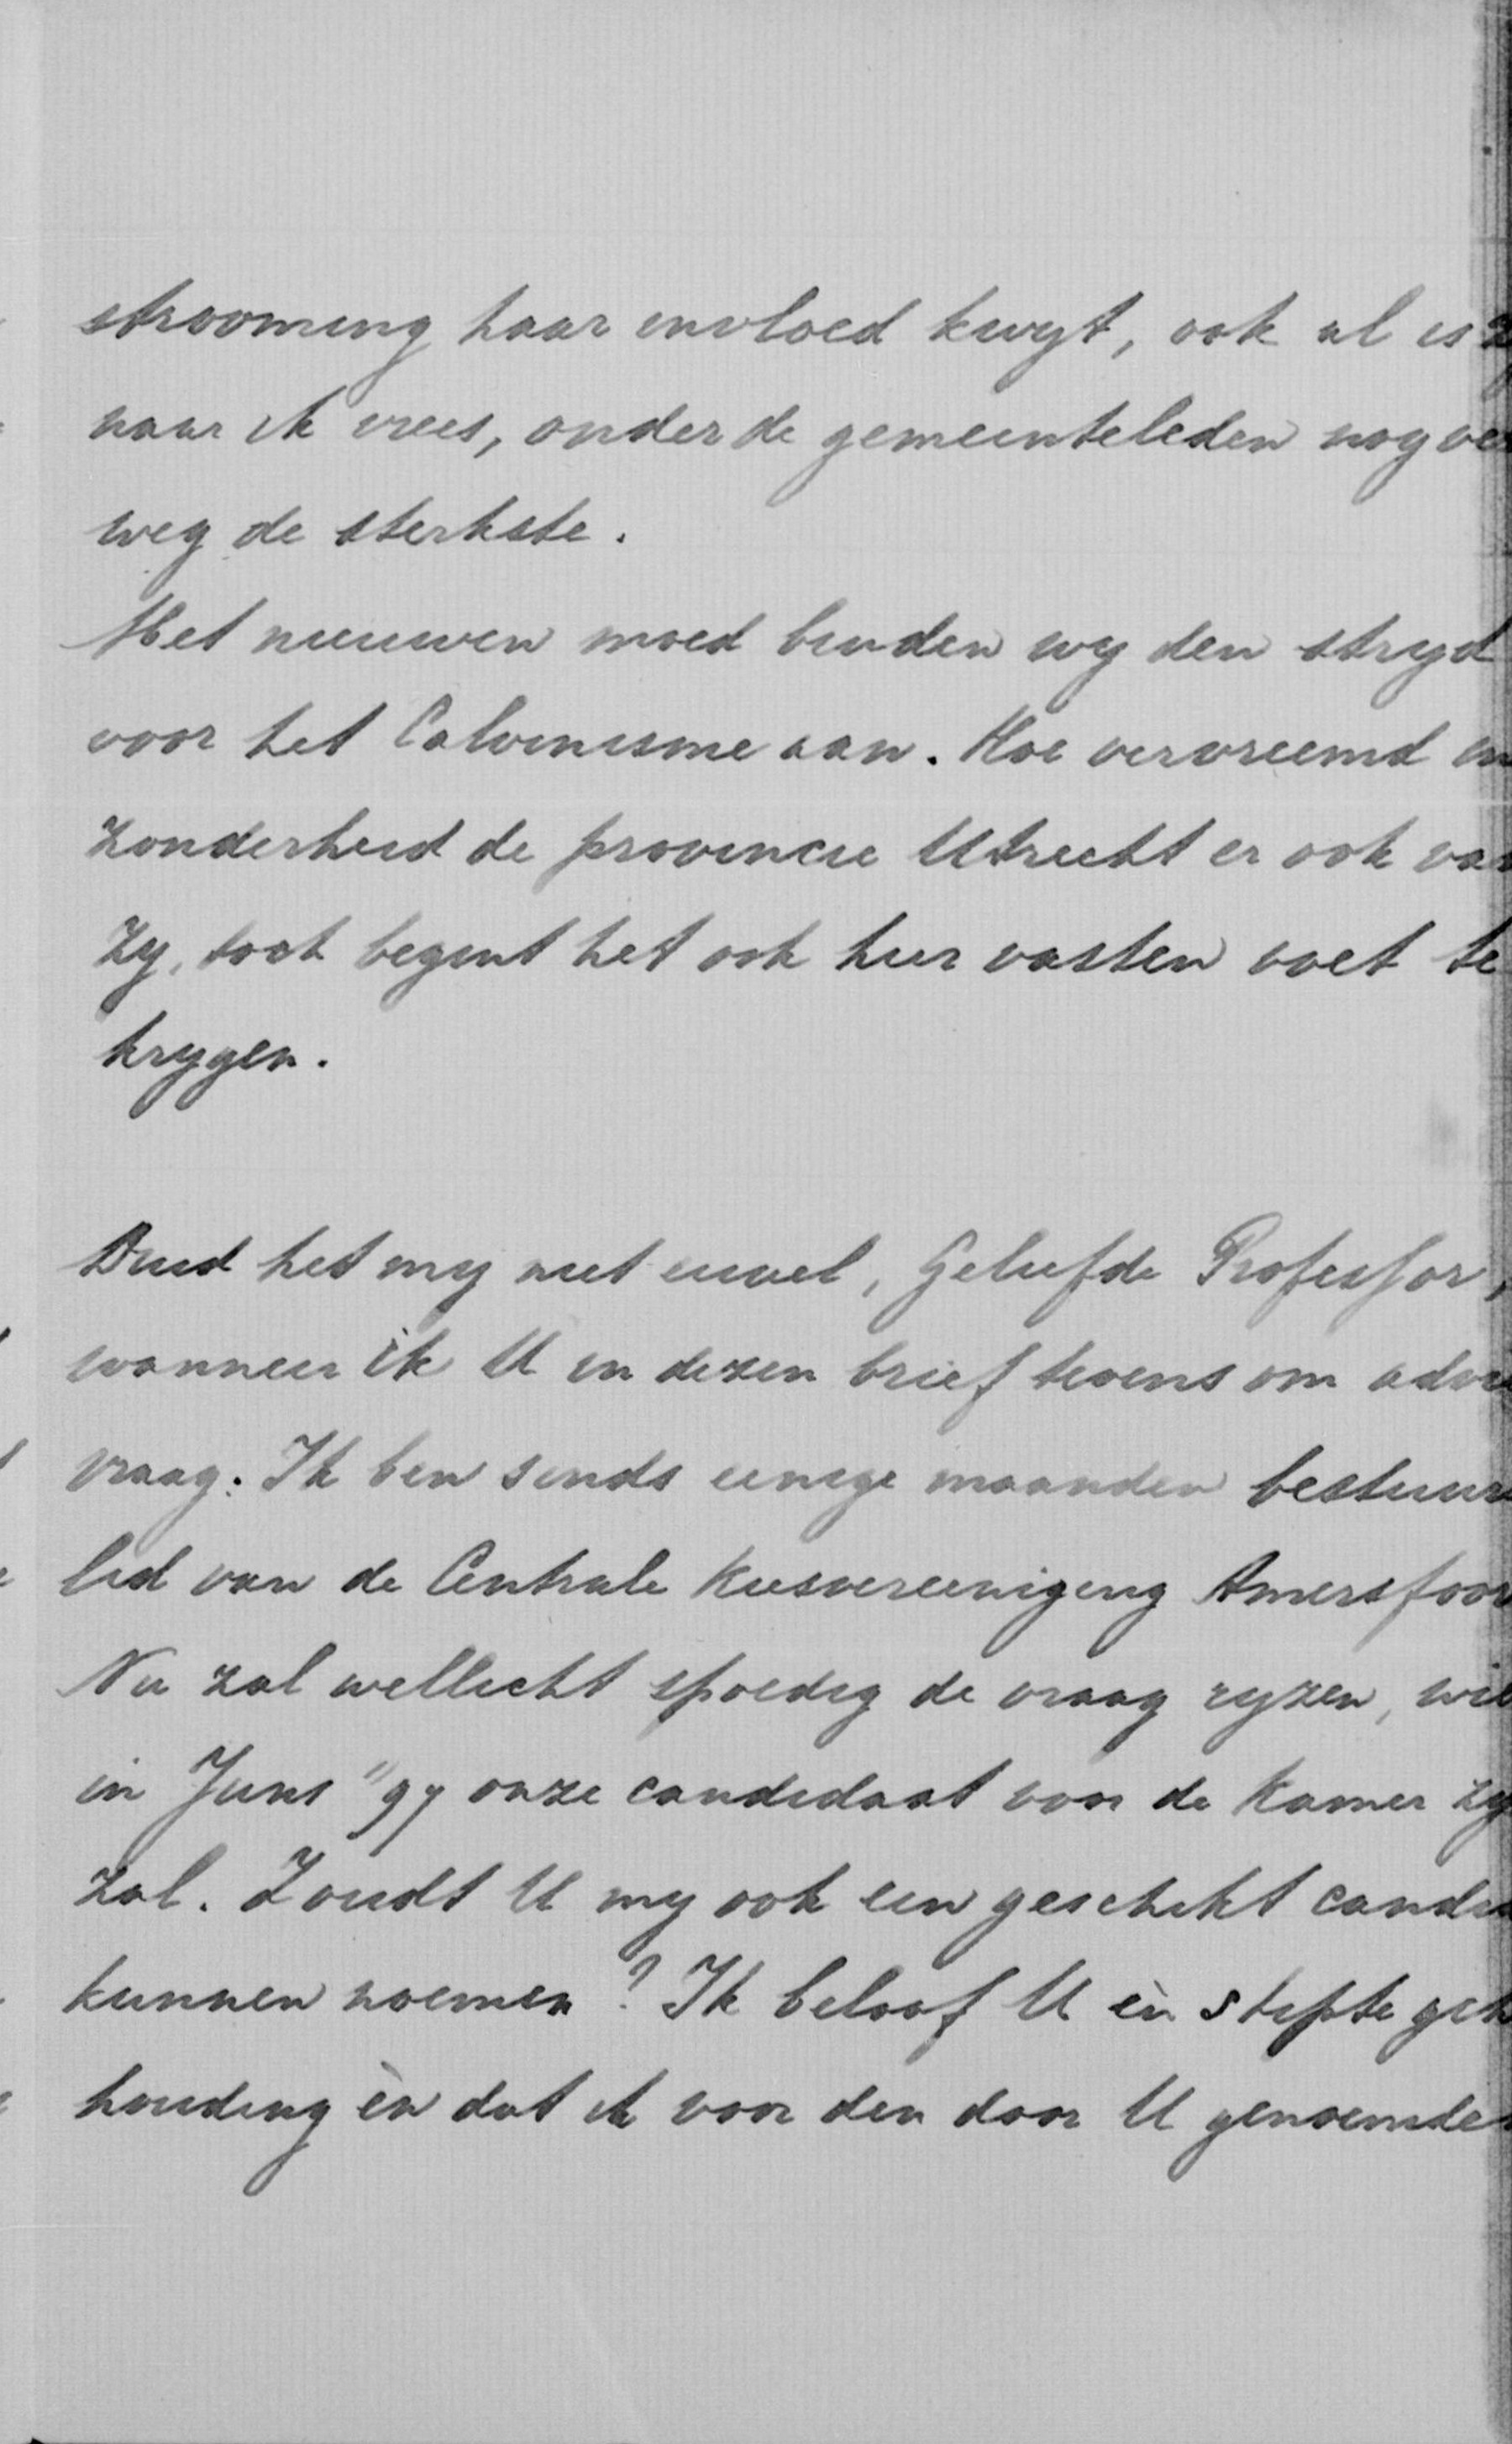 strooming haar invloed kwijt, ook al is z
naar ik vrees, onder de gemeenteleden nog ve
weg de sterkste.
Met nieuwen moed binden wij den strijd
voor het Calvinisme aan. Hoe vervreemd in
zonderheid de provincie Utrecht er ook van
zij, toch begint het ook hier vasten voet te
krijgen.
Duid het mij niet euvel, Geliefde Professor,
wanneer ik U in dezen brief tevens om advi
vraag: Ik ben sinds eenige maanden bestuurs
lid van de Centrale Kiesvereeniging Amersfoor
Nu zal wellicht spoedig de vraag rijzen, wie
in Juni "97 onze candidaat voor de Kamer zij
zal. Zoudt U mij ook een geschikt candid
kunnen noemen? Ik beloof U èn stipte geh
houding èn dat ik voor den door U genoemden